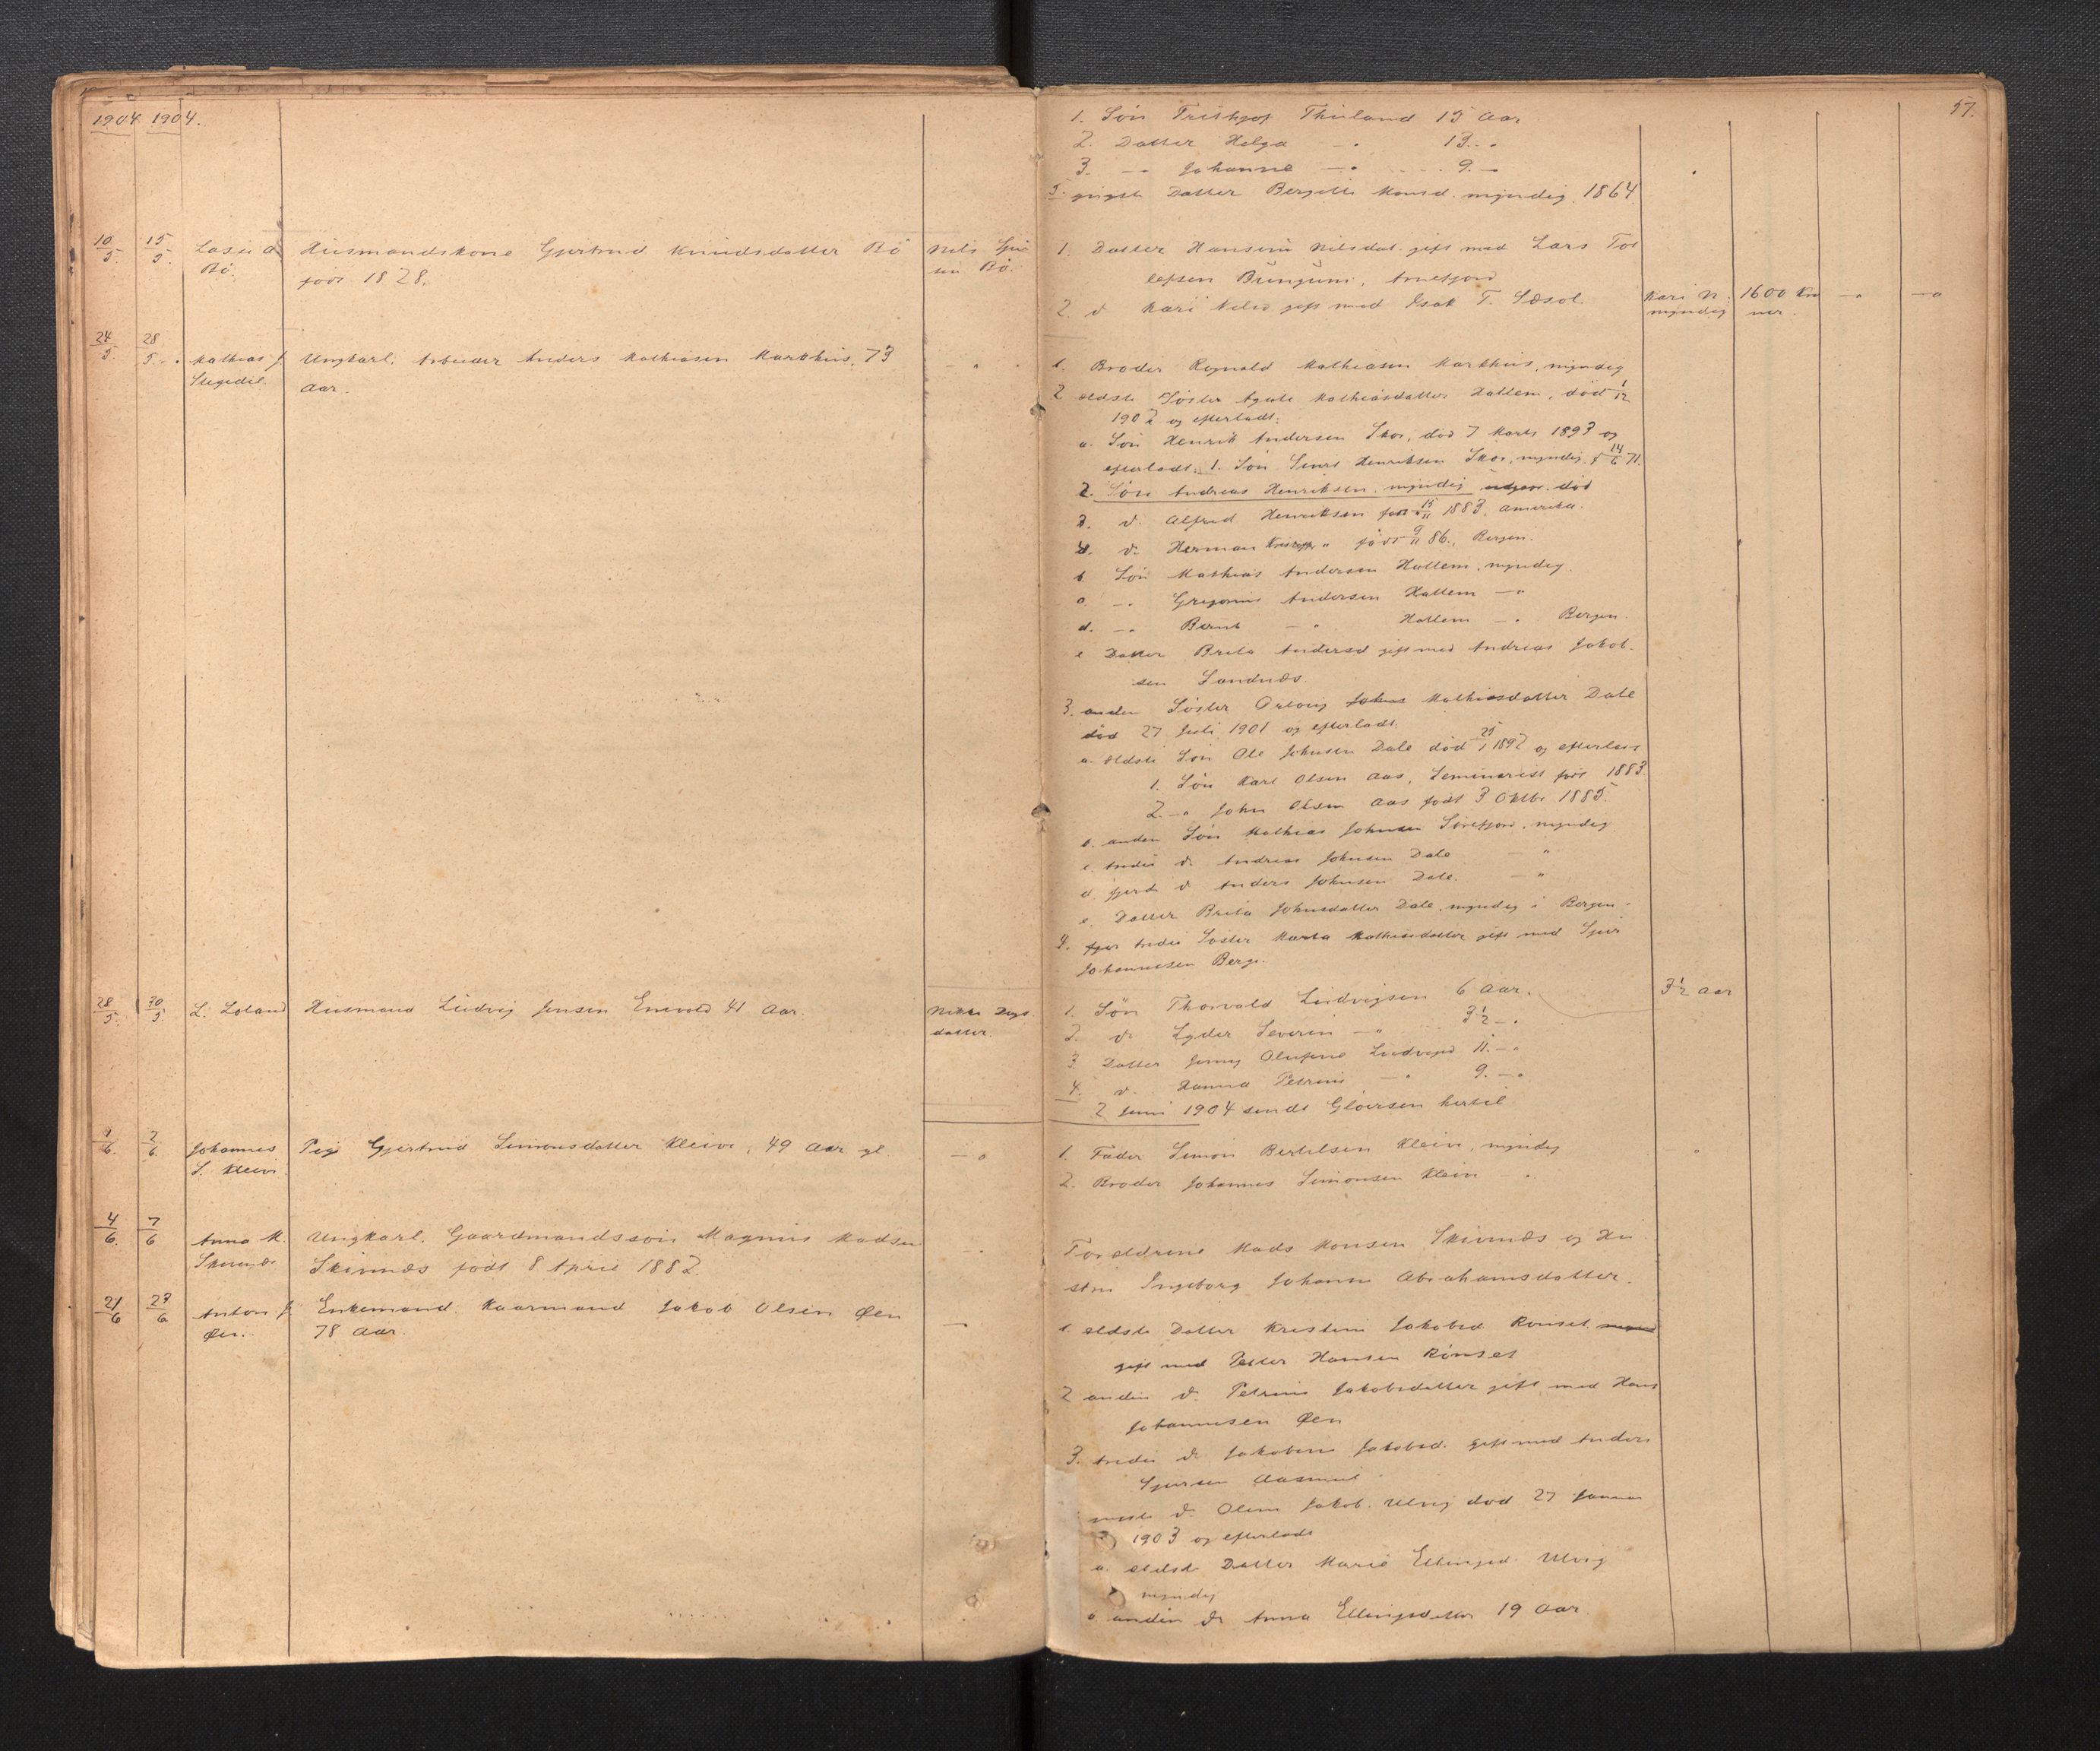 1904 1904.
10/5. 15/5. Lasse
Bö.
Husmandskone Gjertrud Knudsdatter Bö
født 1828.
Nils
sen Bö.
24/5. 28/5. Mathias J.
Ungkarl, Arbeider Anders Mathiasen Markhus, 73
Aar.
28/5. 30/5. L. Loland
Husmand Ludvig Jensen 41 Aar.
datter.
1/6. 2/6. Johannes
S. Kleiva
Pige Gjertrud Simonsdatter Kleiva, 49 Aar gl.
4/6. 7/6 Anna M.
Skivenæs
Ungkarl, Gaardmandssøn Magnus Madsen
Skivenæs født 8 April 1882.
21/6 23/6 Anton J.
Øen.
Enkemand, Kaarmand Jakob Olsen Øen
78 Aar.
57.
1. Søn Frithjof 15 Aar
2. Datter Helga 13 - "
3. - " Johanne - " 9. -
5. Datter Bergitte Monsd. myndig. 1864
1. Datter Hansine Nilsdat. gift med Lars Tol
lefsen , Arnefjord
2. d. Kari Nilsd gift med Isak T.
Kari N.
myndig
1600 Kro
ner.
1. Broder Mathiasen Markhus, myndig
2 ældste Søster Mathiasdatter Hatlem, død 1/12
1902 og efterladt:
a. Søn Henrik Andersen Skor, død 7 Marts 1893 og
efterladt: 1. Søn Henriksen Skor, myndig, f 14/6 71.
2. Søn Andreas Henriksen, myndig død
3. d. Alfred Henriksen født 15/11 1883, Amerika.
4. d. Herman " født 9/11 86., Bergen.
b. Søn Mathias Andersen Hatlem, myndig.
c. - " Andersen Hatlem - "
d. - " Bernt - " Hatlem - " Bergen.
e Datter Brita Andersd gift med Andreas Jakob.
sen Sandnæs.
3. anden Søster Mathiasdatter Dale
død 27 Juli 1901 og efterladt.
a. ældste Søn Ole Johnsen Dale død 25/1 1892 og efterladt
1. Søn Karl Olsen Aas, Seminarist født 1883.
2. - " John Olsen Aas født 3 Oktbr 1885.
b. anden Søn Mathias Johnsen , myndig
c. tredie d. Andreas Johnsen Dale - "
d. fjerde d. Anders Johnsen Dale. - "
e. Datter Brita Johnsdatter Dale, myndig i Bergen.
4. tredie Søster Marta Mathiasdatter gift med Sjur
Johannesen Berge.
1. Søn Thorvald Ludvigsen 6 Aar.
3½ Aar
2. d. Lyder Severin - " 3½ - "
3 Datter Jenny Ludvigsd 11. - "
4. d. Hanna Petrine - " 9. - "
2 Juni 1904 sendt hertil
1. Fader Simon Bertelsen Kleiva, myndig
2. Broder Johannes Simonsen Kleiva "
Forældrene Mads Monsen Skivenæs og Hu
stru Ingeborg Johanne Abrahamsdatter.
1. ældste Datter Kristine Jakobsd
gift med Hansen
2 anden d. Petrine Jakobsdatter gift med Hans
Johannesen Øen
3. tredie d. Jakobine Jakobsd. gift med Anders
Sjursen
d. Oline Jakob. Ulvig død 27 Januar
1903 og efterladt
a. ældste Datter Marie Ellingsd. Ulvig
myndig
anden d. Anna Ellingsdatter 19 Aar.